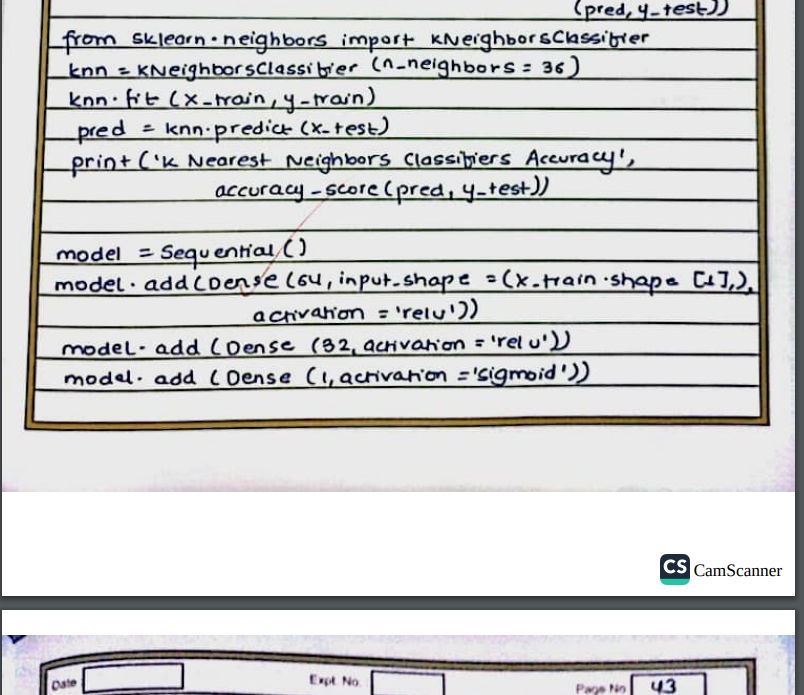 (pred, y_test))
from sklearn.neighbors import KNeighborsClassifier
knn = KNeighborsClassifier (n_neighbors = 36)
knn.fit (x_train, y_train)
pred = knn.predict (x_test)
print ('K Nearest Neighbors Classifiers Accuracy',
accuracy_score (pred, y_test))
model = Sequential ()
model.add (Dense (64, input_shape = (x_train.shape [1],),
activation = 'relu'))
model.add (Dense (32, activation = 'relu'))
model.add (Dense (1, activation = 'sigmoid'))
CS CamScanner
Date Expt. No. Page No 43